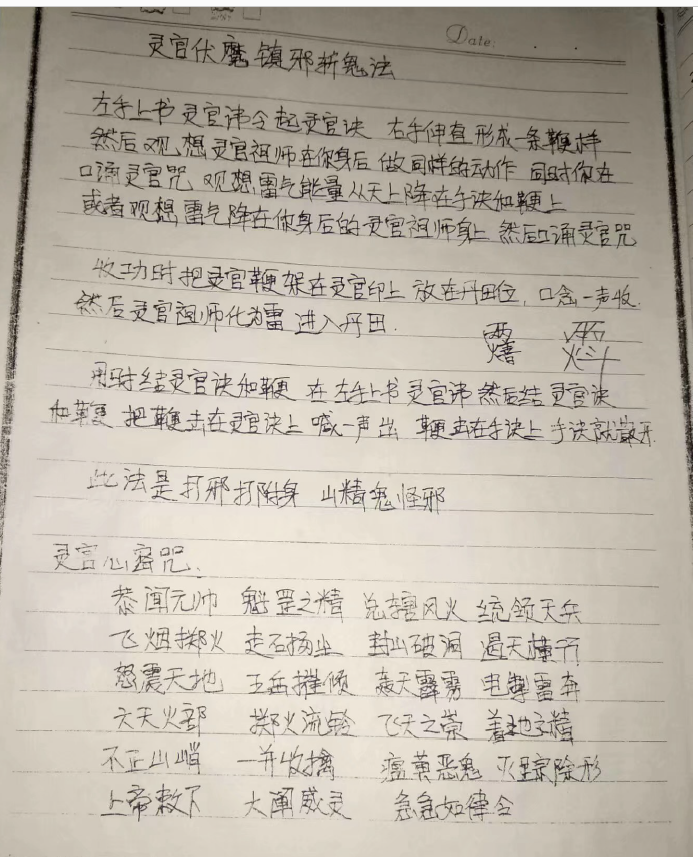 Date:
灵官伏魔镇邪斩鬼法
左手上书灵官讳令起灵官诀 右手伸直形成一条鞭样
然后观想灵官祖师在你身后做同样的动作 同时你在
口诵灵官咒 观想雷气能量从天上降在手诀和鞭上
或者观想雷气降在你身后的灵官祖师身上 然后口诵灵官咒
收功时把灵官鞭架在灵官印上 放在丹田位,口念一声收.
然后灵官祖师化为雷 进入丹田.
用时结灵官诀和鞭 在左手上书灵官讳 然后结灵官诀
和鞭 把鞭击在灵官诀上 喊一声出 鞭击在手诀上 手诀就散开
此法是打邪打附身 山精鬼怪邪
灵官心密咒.
恭闻元帅 魁罡之精 总辖风火 统领天兵
飞烟掷火 走石扬尘 封山破洞 遏天横行
怒震天地 五岳摧倾 轰天霹雳 电掣雷奔
六天火部 掷火流铃 飞天之祟 着地之精
不正山魈 一并收擒 瘟黄恶鬼 灭踪除形
上帝敕下 大阐威灵 急急如律令